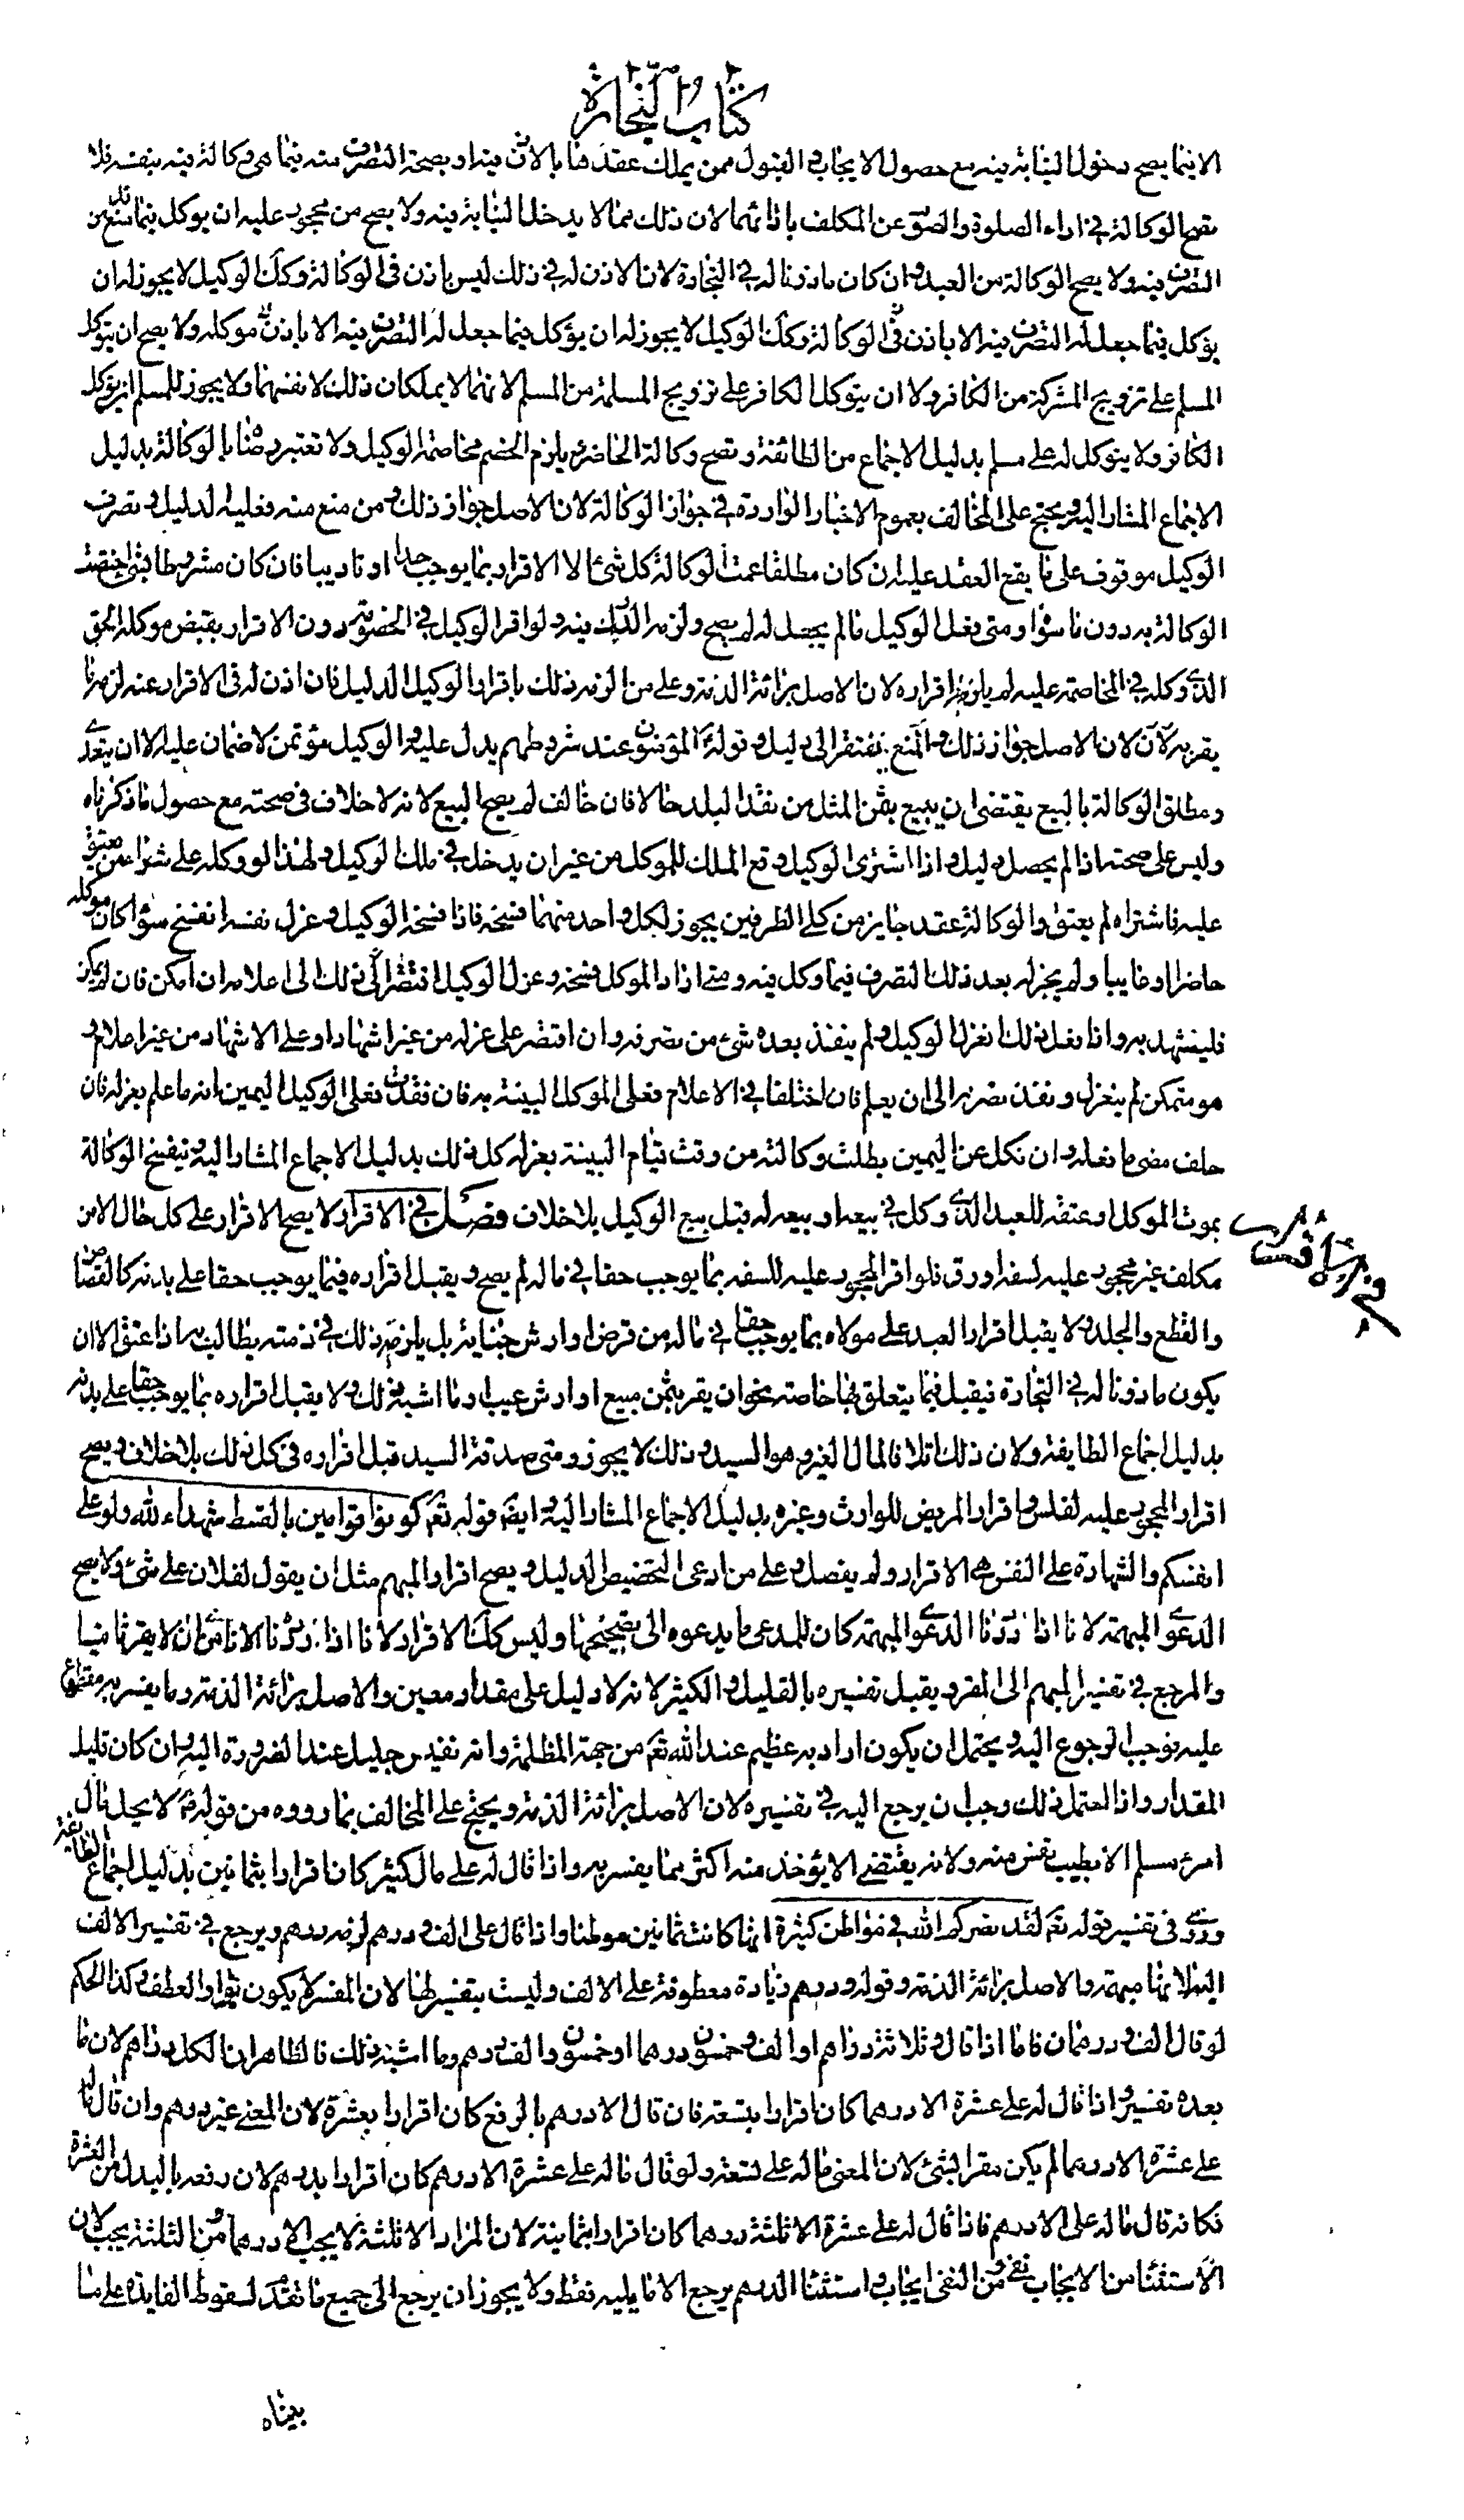 كتاب التجارة
الا فيما يصح دخول النيابة فيه مع حصول الايجاب و القبول ممن يملك عقدها بالاذن فيه او بصحة التصرف منه فيما هى وكالة فيه بنفسه فلا
تصح الوكالة فى اداء الصلوة و الصوم عن المكلف باداءهما لان ذلك مما لا يدخل النيابة فيه ولا يصح من محجور عليه ان يوكل فيما قد منع من
التصرف فيه ولا يصح الوكالة من العبد و ان كان ماذونا له فى التجارة لان الاذن له فى ذلك ليس باذن فى الوكالة وكذلك الوكيل لا يجوز له ان
يوكل فيما جعل له التصرف فيه الا باذن فى الوكالة وكذلك الوكيل لا يجوز له ان يؤكل فيما جعل له التصرف فيه الا باذن موكله ولا يصح ان يتوكل
المسلم على تزويج المشركة من الكافر ولا ان يتوكل الكافر على تزويج المسلمة من المسلم لانهما لا يملكان ذلك لانفسهما ولا يجوز للمسلم ان يوكل
الكافر ولا يتوكل له على مسلم بدليل الاجماع من الطائفة و تصح وكالة الحاضر و يلزم الخصم مخاصمة الوكيل ولا تعتبر رضاه بالوكالة بدليل
الاجماع المشار اليه و يحتج على المخالف بعموم الاخبار الواردة فى جواز الوكالة لان الاصل جواز ذلك و من منع منه فعليه الدليل و تصرف
الوكيل موقوف على ما يقع العقد عليه ان كان مطلقا عمت الوكالة كل شئ الا الاقرار بما يوجب حدا او تاديبا فان كان مشروطا بشئ اختصت
الوكالة به دون ما سواه و متى فعل الوكيل ما لم يجعل له لم يصح و لزمه الدرك فيه ولو اقر الوكيل فى الخصومة دون الاقرار بقبض موكله الحق
الذى وكله فى المخاصمة عليه لم يلزمه اقراره لان الاصل برائة الذمة و على من الزمه ذلك باقرار الوكيل الدليل فان اذن له فى الاقرار عنه لزمه ما
يقر به لان الاصل جواز ذلك و المنع يفتقر الى دليل و قوله المؤمنون عند شروطهم يدل عليه و الوكيل مؤتمن لا ضمان عليه الا ان يتعدى
و مطلق الوكالة بالبيع يقتضى ان يبيع بثمن المثل من نقد البلد حالا فان خالف لم يصح البيع لانه لا خلاف فى صحته مع حصول ما ذكرناه
وليس على صحته اذا لم يحصل دليل و اذا اشترى الوكيل وقع الملك للموكل من غير ان يدخل فى ملك الوكيل و لهذا لو وكله على شراء من يعتق
عليه فاشتراه لم يعتق و الوكالة عقد جايز من كلى الطرفين يجوز لكل واحد منهما فسخه فاذا فسخه الوكيل و عزل نفسه انفسخ سواء كان موكله
حاضرا او غايبا ولم يجز له بعد ذلك التصرف فيما وكل فيه و متى اراد الموكل فسخه و عزل الوكيل افتقر فى ذلك الى اعلامه ان امكن فان لم يمكن
فليشهد به و اذا فعل ذلك انعزل الوكيل و لم ينفذ بعده شئ من تصرفه و ان اقتصر على عزله من غير اشهاد او على الاشهاد من غير اعلام و
هو متمكن لم ينعزل و نفذ تصرفه الى ان يعلم فان اختلفا فى الاعلام فعلى الموكل البينة به فان فقدت فعلى الوكيل اليمين انه ما علم بعزله فان
حلف مضى ما فعله و ان نكل عن اليمين بطلت وكالته من وقت قيام البينة بعزله كل ذلك بدليل الاجماع المشار اليه و ينفسخ الوكالة
بموت الموكل او عتقه للعبد الذى وكل فى بيعه او بيعه له قبل بيع الوكيل بلا خلاف فصل فى الاقرار لا يصح الاقرار على كل حال الا من
فى الاقرار
مكلف غير محجور عليه لسفه او رق فلو اقر المحجور عليه للسفه بما يوجب حقا فى ماله لم يصح و يقبل اقراره فيما يوجب حقا على بدنه كالقصاص
و القطع و الجلد و لا يقبل اقرار العبد على مولاه بما يوجب حقا فى ماله من قرض او ارش جناية بل يلزمه ذلك فى ذمته يطالب به اذا عتق الا ان
يكون ماذونا له فى التجارة فيقبل فيما يتعلق بها خاصة نحو ان يقر بثمن مبيع او ارش عيب او ما اشبه ذلك و لا يقبل اقراره بما يوجب حقا على بدنه
بدليل اجماع الطايفة ولان ذلك اتلافا لمال الغير و هو السيد و ذلك لا يجوز و متى صدقه السيد قبل اقراره فى كل ذلك بلا خلاف و يصح
اقرار المحجور عليه لفلس و اقرار المريض للوارث و غيره بدليل الاجماع المشار اليه و ايضا قوله تعم كونوا قوامين بالقسط شهداء لله ولو على
انفسكم و الشهادة على النفس هى الاقرار و لم يفصل و على من ادعى التخصيص الدليل و يصح اقرار المبهم مثل ان يقول لفلان على شئ و لا يصح
الدعوى المبهمة لانا اذا رددنا الدعوى المبهمة كان للمدعى ما يدعوه الى تصحيحها و ليس كذلك الاقرار لانا اذا رددنا لا نامن ان لا يقر ثانيا
و المرجع فى تفسير المبهم الى المقر و يقبل تفسيره بالقليل و الكثير لانه لا دليل على مقدار معين و الاصل برائة الذمة و ما يفسر به مقطوع
عليه فوجب الرجوع اليه و يحتمل ان يكون اراد به عظيم عند الله تعم من جهة المظلمة و انه نفيس جليل عند الضرورة اليه و ان كان قليل
المقدار و اذا احتمل ذلك وجب ان يرجع اليه فى تفسيره لان الاصل برائة الذمة و يحتج على المخالف بما رووه من قوله لا يحل مال
امرئ مسلم الا بطيب نفس منه ولانه يقتضى الا يؤخذ منه اكثر مما يفسر به و اذا قال له على مال كثير كان اقرارا بثمانين بدليل اجماع الطايفة
و روى فى تفسير قوله تعم لقد نصركم الله فى مواطن كثيرة انها كانت ثمانين موطنا و اذا قال على الف و درهم لزمه درهم و يرجع فى تفسير الالف
اليه لانها مبهمة و الاصل برائة الذمة و قوله و درهم زيادة معطوفة على الالف و ليست بتفسير لها لان المفسر لا يكون بواو العطف و كذا الحكم
لو قال الف و درهمان فاما اذا قال و ثلاثة دراهم او الف و خمسون درهما او خمسون و الف درهم و ما اشبه ذلك فالظاهر ان الكل دراهم لان ما
بعده تفسير و اذا قال له على عشرة الا درهما كان اقرارا بتسعة فان قال الا درهم بالرفع كان اقرارا بعشرة لان المعنى غير درهم و ان قال ماله
على عشرة الا درهما لم يكن مقرا بشئ لان المعنى ماله على تسعة ولو قال ماله على عشرة الا درهم كان اقرارا بدرهم لان رفعه بالبدل من العشرة
فكانه قال ماله على الا درهم فاذا قال له على عشرة الا ثلثة الا درهما كان اقرارا بثمانية لان المراد الا ثلثة لا يجب الا درهما من الثلثة يجب لان
الاستثناء من الايجاب نفى و من النفى ايجاب و استثناء الدرهم يرجع الا ما يليه فقط و لا يجوز ان يرجع الى جميع ما تقدم لسقوط الفايدة على ما
بيناه